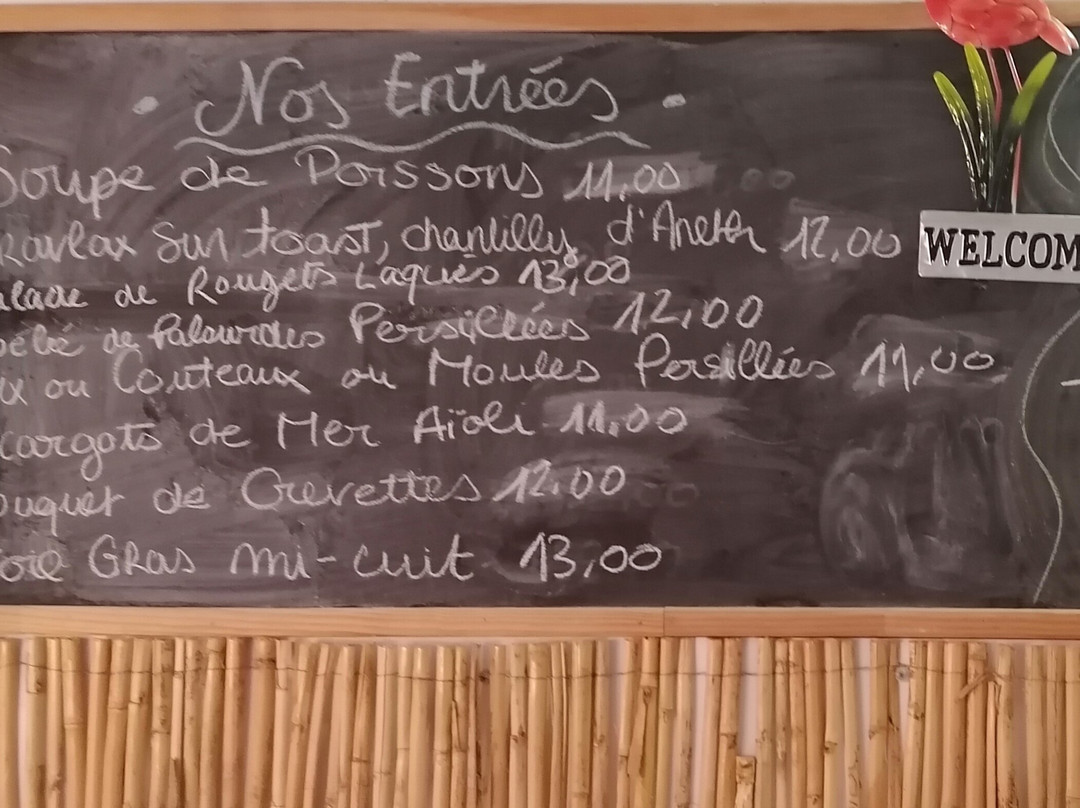 Nos Entrées
Soupe de Poissons 11,00
Ravlax sur toast, chantilly d'Aneth 12,00
alade de Rougets Laqués 13,00
de Palourdes Persillées 12,00
ux ou Couteaux ou Moules Persillées 11,00
cargots de Mer Aïoli 11,00
ouquet de Crevettes 12,00
oie Gras mi-cuit 13,00
WELCOM